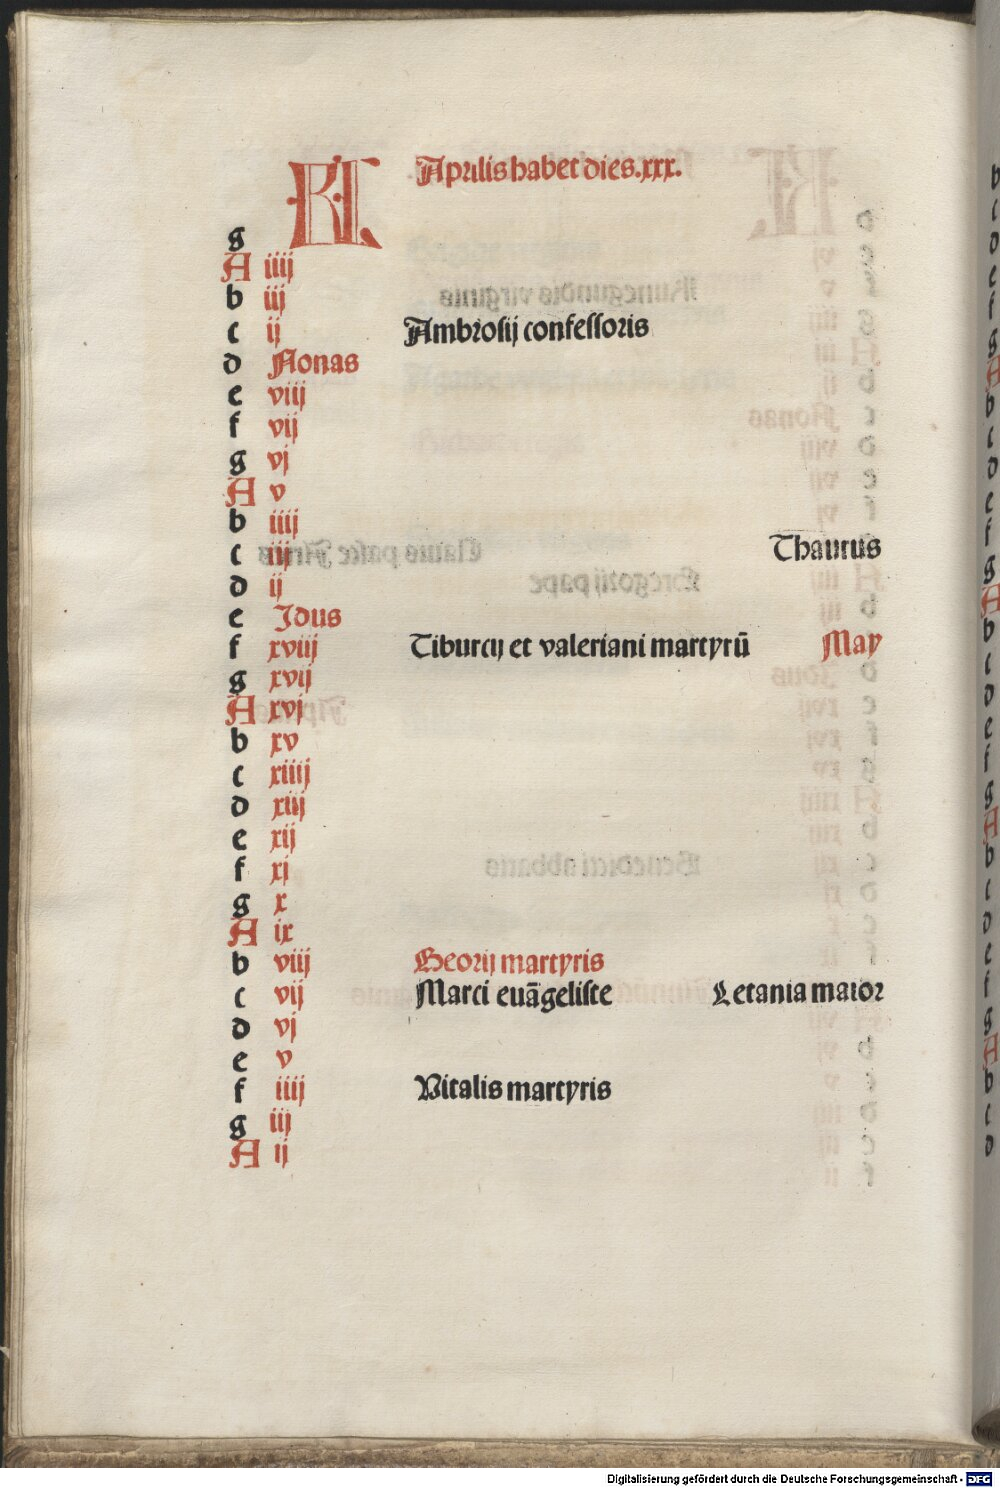 KL Aprilis habet dies .xxx.
g
A iiij
b iij
c ij Ambrosij confessoris
d Nonas
e viij
f vij
g vj
A v
b iiij
c iij Thaurus
d ij
e Jdus
f xviij Tiburcij et valeriani martyrū May
g xvij
A xvj
b xv
c xiiij
d xiij
e xij
f xj
g x
A ix
b viij Georij martyris
c vij Marci euāgeliste Letania maior
d vj
e v
f iiij Vitalis martyris
g iij
A ij
Digitalisierung gefördert durch die Deutsche Forschungsgemeinschaft - DFG